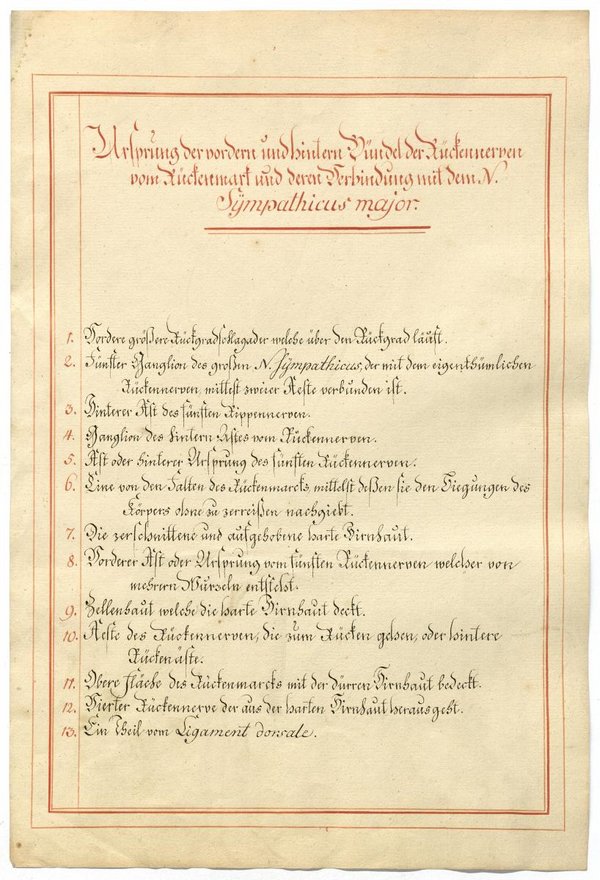 Ursprung der vordern und hintern Bündel der Rückennerven
vom Rückenmark und deren Verbindung mit dem N.
Sÿmpathicus major.
1. Vordere größere Rückgradschlagader welche über den Rückgrad läuft.
2. Fünfter Ganglion des großen N. Sÿmpathicus, der mit dem eigenthümlichen
Rückennerven, mittest zweier Aeste verbunden ist.
3. Hinterer Ast des fünften Rippennerven.
4. Ganglion des hintern Astes vom Rückennerven.
5. Ast oder hinterer Ursprung des fünften Rückennerven.
6. Eine von den Falten des Rückenmarcks, mittelst deßen sie den Biegungen des
Körpers ohne zu zerreißen nachgiebt.
7. Die zerschnittene und aufgehobene harte Hirnhaut.
8. Vorderer Ast oder Ursprung vom fünften Rückennerven welcher von
mehrern Wurzeln entsteht.
9. Zellenhaut welche die harte Hirnhaut deckt.
10. Aeste des Rückennerven, die zum Rücken gehen, oder hintere
Rückenäste.
11. Obere Fläche des Rückenmarcks mit der dürren Hirnhaut bedeckt.
12. Vierter Rückennerve der aus der harten Hirnhaut herausgeht.
13. Ein Theil vom Ligament dorsale.